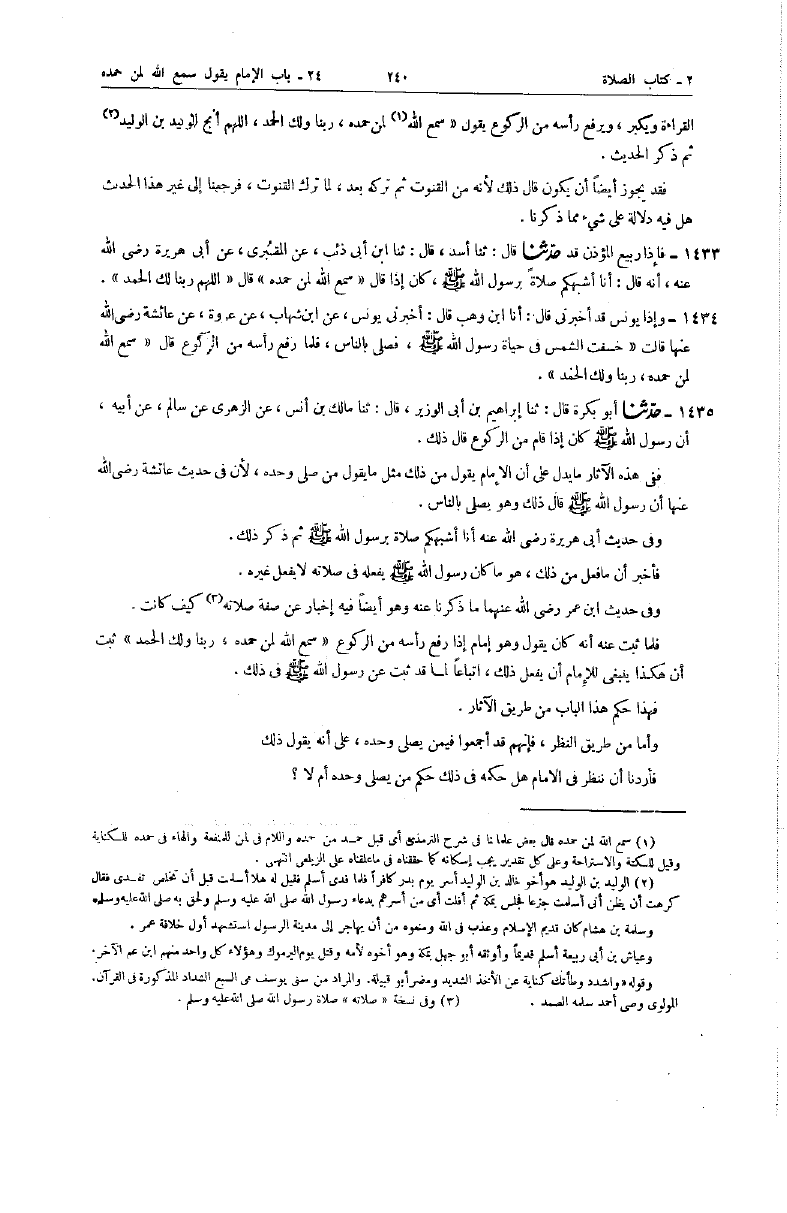 ٢ ـ كتاب الصلاة ٢٤٠ ٢٤ ـ باب الإمام يقول سمع الله لمن حمده
القراءة ويكبر ، ويرفع رأسه من الركوع يقول « سمع الله(١) لمن حمده ، ربنا ولك الحمد ، اللهم أنج الوليد بن الوليد(٢)
ثم ذكر الحديث .
فقد يجوز أيضاً أن يكون قال ذلك لأنه من القنوت ثم تركه بعد ، لما ترك القنوت ، فرجعنا إلى غير هذا الحدث
هل فيه دلالة على شيء مما ذكرنا .
١٤٣٣ ـ فإذا ربيع المؤذن قد حدثنا قال : ثنا أسد ، قال : ثنا ابن أبى ذئب ، عن المقبُرى ، عن أبى هريرة رضى الله
عنه ، أنه قال : أنا أشبهكم صلاةً برسول الله ﷺ ، كان إذا قال « سمع الله لمن حمده » قال « اللهم ربنا لك الحمد » .
١٤٣٤ ـ وإذا يونس قد أخبرنى قال : أنا ابن وهب قال : أخبرنى يونس ، عن ابن شهاب ، عن عروة ، عن عائشة رضى الله
عنها قالت « خسفت الشمس فى حياة رسول الله ﷺ ، فصلى بالناس ، فلما رفع رأسه من الركوع قال « سمع الله
لمن حمده ، ربنا ولك الحمد » .
١٤٣٥ ـ حدثنا أبو بكرة قال : ثنا إبراهيم بن أبى الوزير ، قال : ثنا مالك بن أنس ، عن الزهرى عن سالم ، عن أبيه ،
أن رسول الله ﷺ كان إذا قام من الركوع قال ذلك .
ففى هذه الآثار مايدل على أن الإمام يقول من ذلك مثل مايقول من صلى وحده ، لأن فى حديث عائشة رضى الله
عنها أن رسول الله ﷺ قال ذلك وهو يصلى بالناس .
وفى حديث أبى هريرة رضى الله عنه أنا أشبهكم صلاة برسول الله ﷺ ثم ذكر ذلك .
فأخبر أن مافعل من ذلك ، هو ماكان رسول الله ﷺ يفعله فى صلاته لايفعل غيره .
وفى حديث ابن عمر رضى الله عنهما ما ذكرنا عنه وهو أيضاً فيه إخبار عن صفة صلاته(٣) كيف كانت .
فلما ثبت عنه أنه كان يقول وهو إمام إذا رفع رأسه من الركوع « سمع الله لمن حمده ، ربنا ولك الحمد » ثبت
أن هكذا ينبغى للإمام أن يفعل ذلك ، اتباعاً لما قد ثبت عن رسول الله ﷺ فى ذلك .
فهذا حكم هذا الباب من طريق الآثار .
وأما من طريق النظر ، فإنهم قد أجمعوا فيمن يصلى وحده ، على أنه يقول ذلك
فأردنا أن ننظر فى الامام هل حكمه فى ذلك حكم من يصلى وحده أم لا ؟
(١) سمع الله لمن حمده قال بعض علمائنا فى شرح الترمذى أى قبل حمد من حمده واللام فى لمن للمنفعة والهاء فى حمده للكناية
وقيل للسكتة والاستراحة وعلى كل تقدير يجب إسكانه كما حققناه فى ماعلقناه على الزيلعى انتهى .
(٢) الوليد بن الوليد هو أخو خالد بن الوليد أسر يوم بدر كافراً فلما فدى أسلم فقيل له هلا أسلمت قبل أن تتخلص تفدى فقال
كرهت أن يظن أنى أسلمت جزعا فحبس بمكة ثم أفلت أى من أسرهم بدعاء رسول الله صلى الله عليه وسلم ولحق به صلى الله عليه وسلم.
وسلمة بن هشام كان قديم الإسلام وعذب فى الله ومنعوه من أن يهاجر إلى مدينة الرسول استشهد أول خلافة عمر .
وعياش بن أبى ربيعة أسلم قديماً وأوثقه أبو جهل بمكة وهو أخوه لأمه وقتل يوم اليرموك وهؤلاء كل واحد منهم ابن عم الآخر.
وقوله « واشدد وطأتك كناية عن الأخذ الشديد ومضر أبو قبيلة. والمراد من سنى يوسف هى السبع الشداد المذكورة فى القرآن.
المولوى وصى أحمد سلمه الصمد . (٣) وفى نسخة « صلاته » صلاة رسول الله صلى الله عليه وسلم .